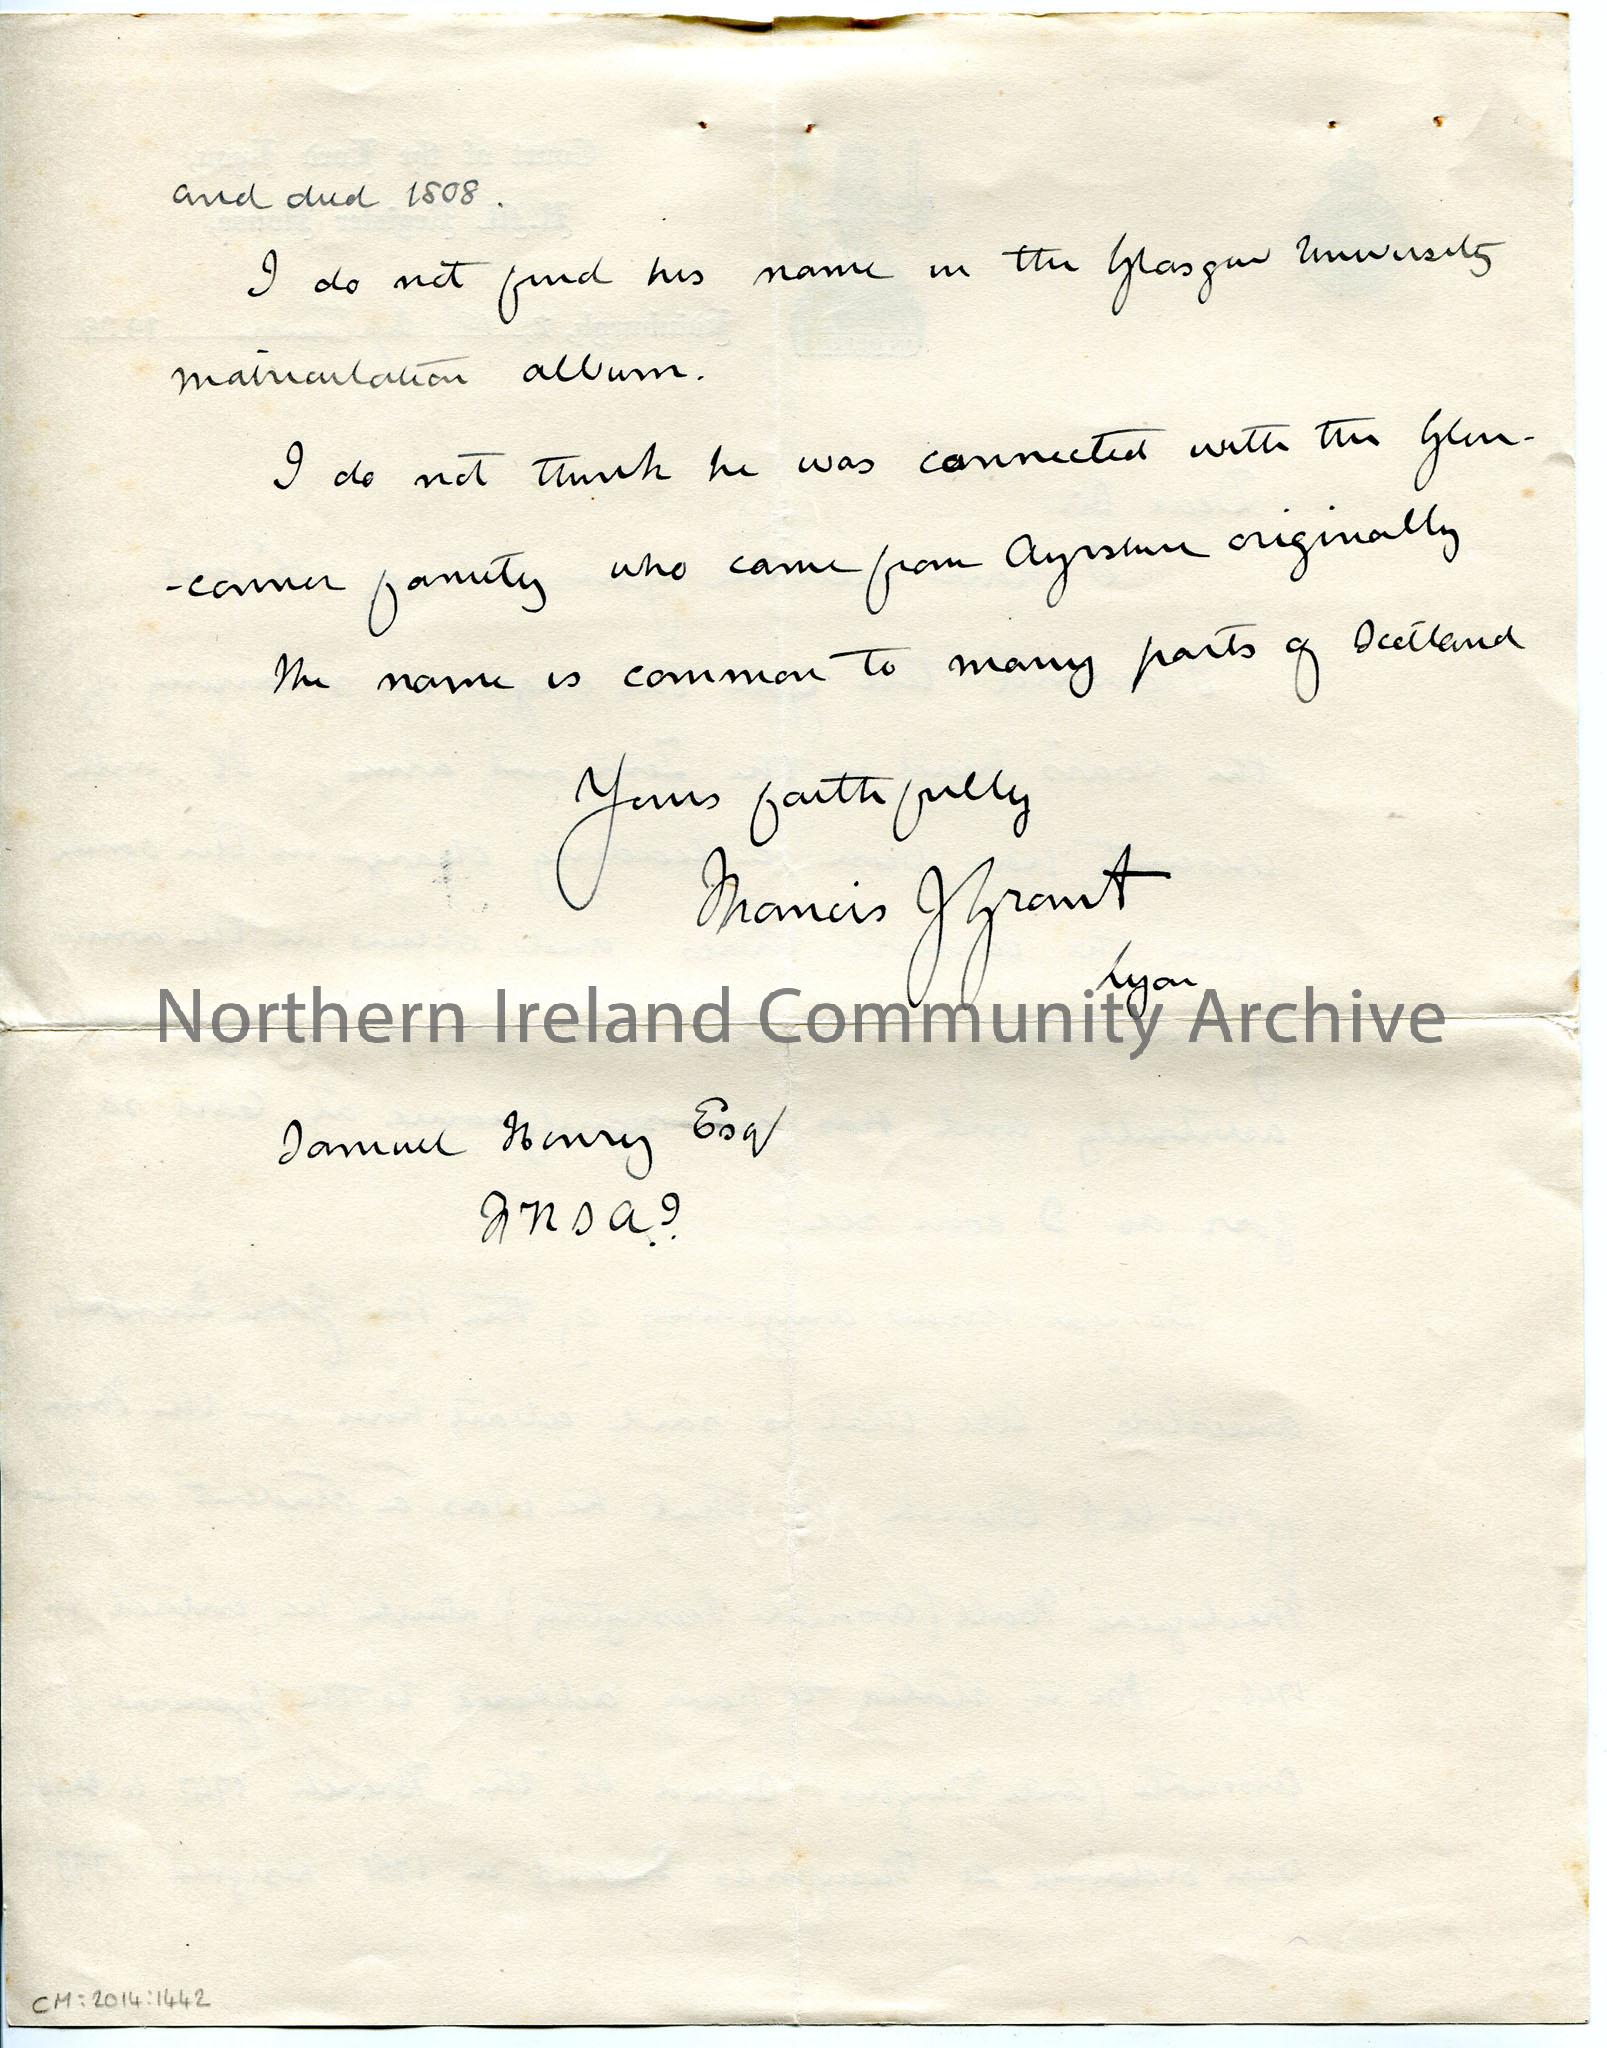 and died 1808.
I do not find his name in the Glasgow University
matriculation album.
I do not think he was connected with the Glen-
-conner family who came from Ayrshire originally
The name is common to many parts of Scotland
Yours faithfully
Francis J Grant
Lyon
Northern Ireland Community Archive
Samuel Henry Esq
FRSA?
CM:2014:1442